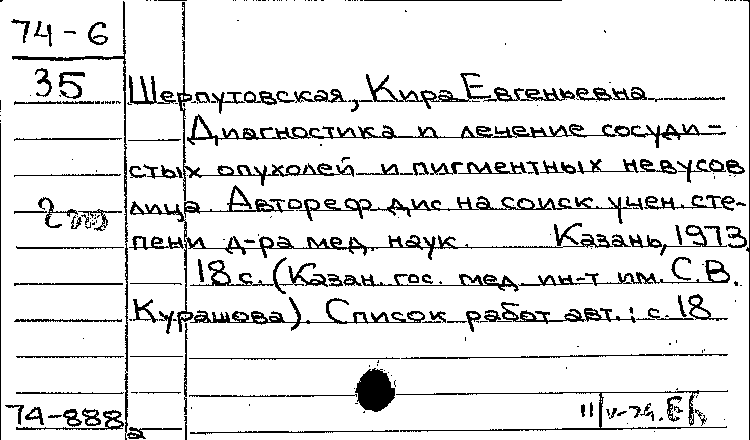 74-6
35
Шерпутовская, Кира Евгеньевна
Диагностика и лечение сосуди-
стых опухолей и пигментных невусов
лица. Автореф. дис. на соиск. учен. сте-
пени д-ра мед. наук. Казань, 1973.
18 с. (Казан. гос. мед. ин-т им. С. В.
Курашова). Список работ авт.: с. 18
2
74-888
а
11/V-74.